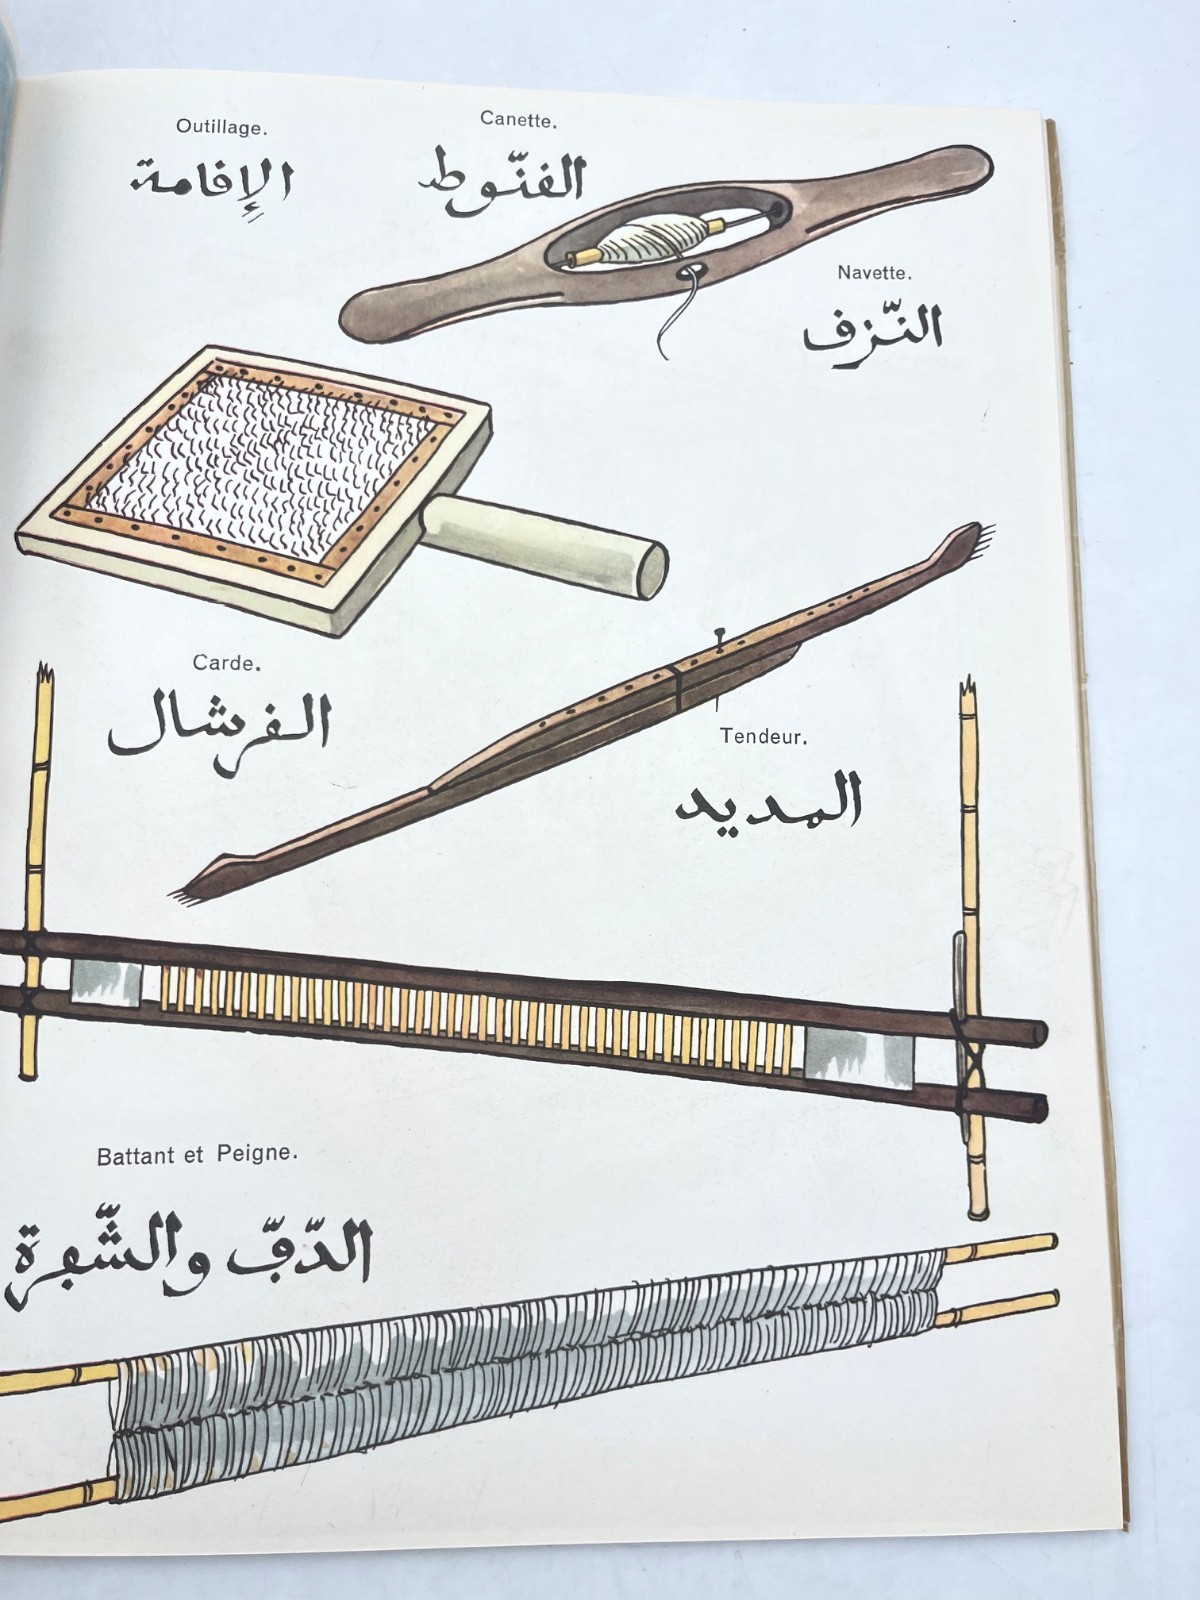 Outillage.
الإقامة
Canette.
القنّوط
Navette.
النّزق
Carde.
القرشال
Tendeur.
المديد
Battant et Peigne.
الدّفّ والشّفرة